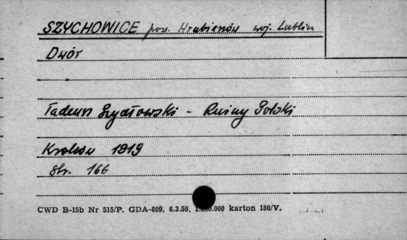 SZYCHOWICE pow. Hrubieszów woj. Lublin
Dwór
Tadeusz Szydłowski - Ruiny Polski
Kraków 1919
Str. 166
CWD B-15b Nr 515/P. GDA-809. 6.3.59. 1.000.000 karton 180/V.